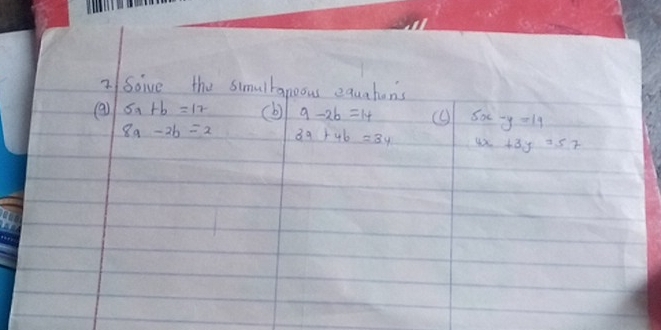 7. Solve the simultaneous equations
(a) 5a + b = 17
8a - 2b = 2
(b) a - 2b = 14
3a + 4b = 34
(c) 5x - y = 19
4x + 3y = 57